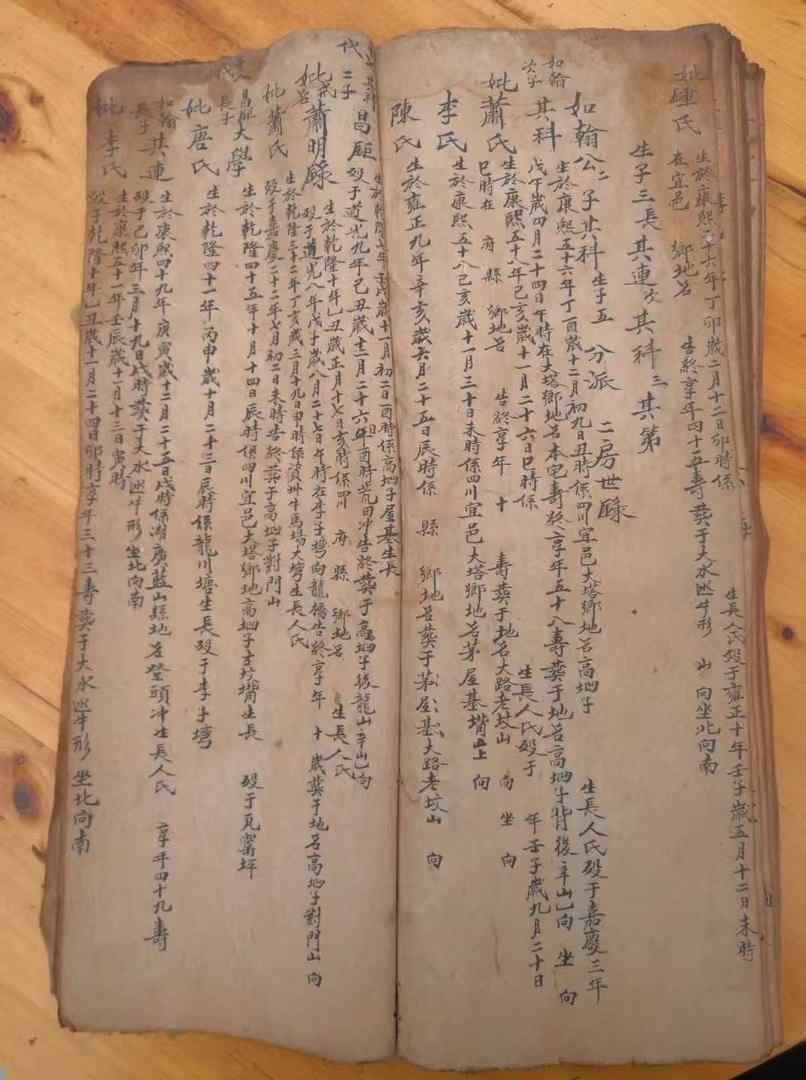 妣鍾氏
生於康熙二十六年丁卯歲二月十二日卯時係
生長人氏殁于雍正十年壬子歲五月十二日未時
在宜邑 鄉地名
告終享年四十五壽葬于大水凼牛形 山 向坐北向南
生子三長其連次其科三其第
如翰公二子其科生子五 分派 二房世録
如翰次子
其科
生於康熙五十六年丁酉歲十二月初九日丑時係四川宜邑大塔鄉地名高坳子
生長人氏殁于嘉慶三年
戊午歲四月二十四日午時在大塔鄉地名本宅壽終享年五十八壽葬于地名高坳子背後辛山乙向 坐 向
妣蕭氏
生於康熙五十八年己亥歲十一月二十六日巳時係
生長人氏殁于 年壬子歲九月二十日
巳時在 府 縣 鄉地名 告終享年 十 壽葬于地名大路老坟山 向 坐 向
李氏
生於康熙五十八己亥歲十一月三十日未時係四川宜邑大塔鄉地名茅屋基㘭上 向
陳氏
生於雍正九年辛亥歲六月二十五日辰時係 縣 鄉地名葬于茅屋基大路老坟山 向
代
二子
昌
生於乾隆 年 歲十一月初二日酉時係高坳子屋基生長
殁于道光九年己丑歲十二月二十六年酉時 田冲告終葬于高坳子後龍山辛山乙向
妣
蕭明
生於乾隆十年乙丑歲正月十七日亥時係四川 府 縣 鄉地名 生長人氏
殁于道光八年戊子歲八月二十七日午時在李子塆向龍橋告終享年 十 歲葬于地名高坳子對門山 向
妣蕭氏
生於乾隆三十二年丁亥歲三月十九日申時係資州牛馬場大塆生長人氏
殁于嘉慶二十二年七月初二日未時告終葬于高坳子對門山
長子
大學
生於乾隆四十五年十月十四日辰時係四川宜邑大塔鄉地高坳子 坟㘭生長 殁于瓦窰坪
妣唐氏
生於乾隆四十一年丙申歲十月二十三日辰時係龍川塘生長殁于李子塆
如翰長子
其連
生於康熙四十九年庚寅歲十二月二十五日戌時係湖廣藍山縣地名登頭冲生長人氏 享年四十九壽
殁于己卯年三月十九日戌時葬于大水凼牛形 坐北向南
妣李氏
生於康熙五十一年壬辰歲十一月十三日寅時
殁于乾隆十年乙丑歲十一月二十四日卯時享年三十三壽葬于大水凼牛形 坐北向南